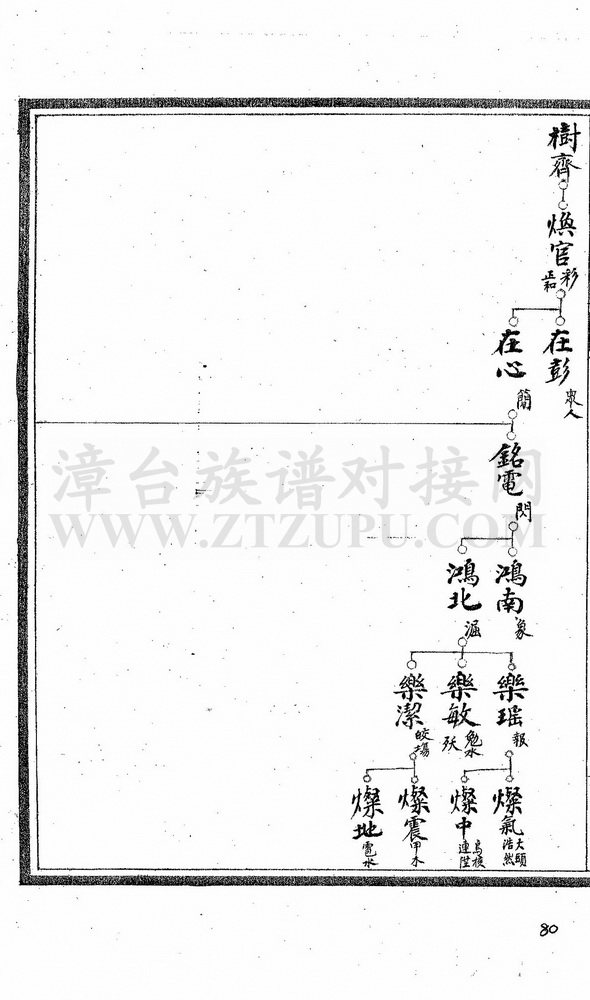 樹齊
煥官
彩
正和
在彭
眾人
在心
簡
銘電
閃
鴻南
象
鴻北
漚
樂瑶
報
樂敏
勉水
歿
樂潔
皎場
燦氣
大頭
浩然
燦中
烏棪
連陞
燦震
甲木
燦地
電水
漳台族谱对接网
WWW.ZTZUPU.COM
80